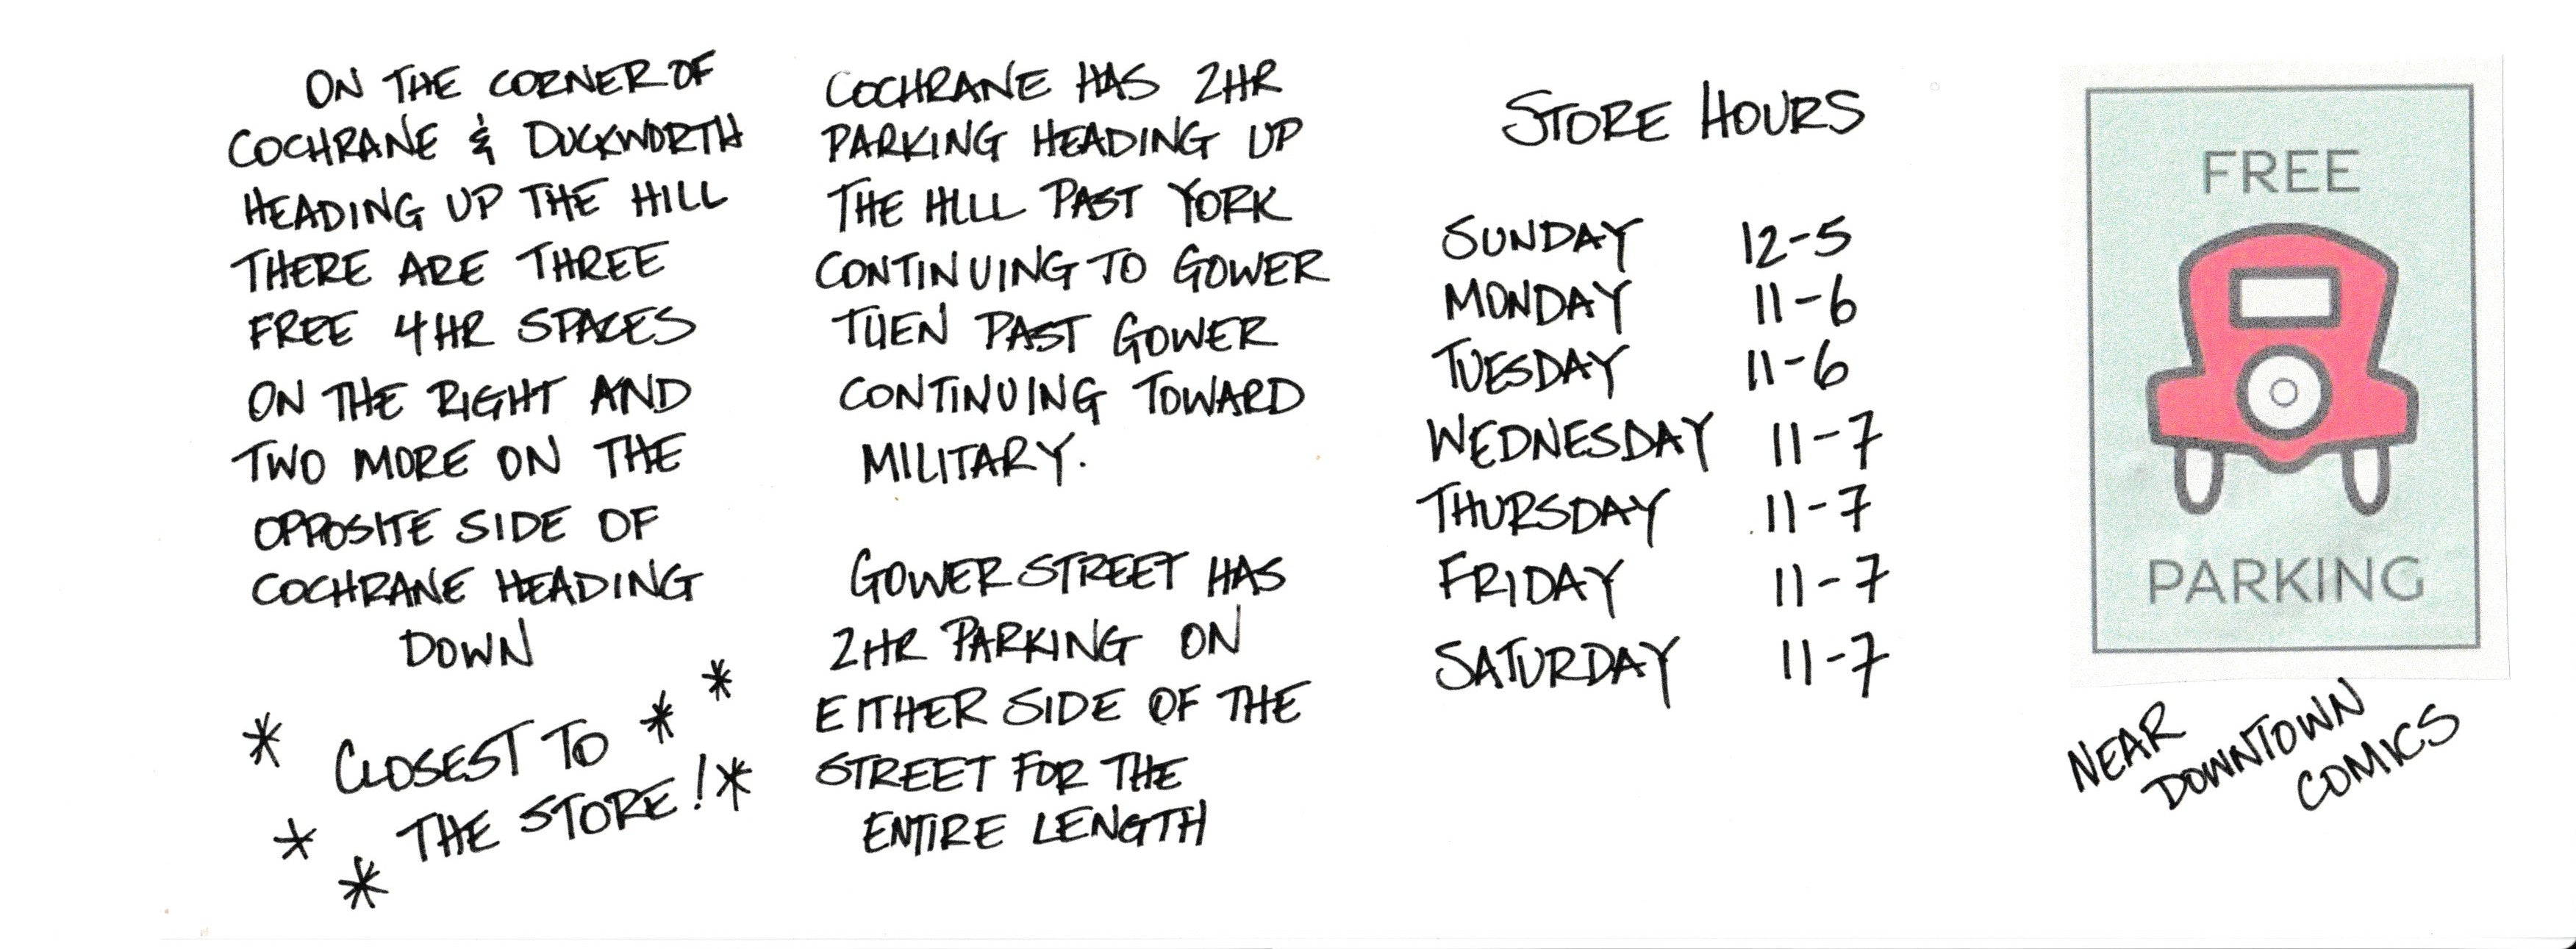 ON THE CORNER OF
COCHRANE & DUCKWORTH
HEADING UP THE HILL
THERE ARE THREE
FREE 4HR SPACES
ON THE RIGHT AND
TWO MORE ON THE
OPPOSITE SIDE OF
COCHRANE HEADING
DOWN
* CLOSEST TO * *
* * THE STORE! *
COCHRANE HAS 2HR
PARKING HEADING UP
THE HILL PAST YORK
CONTINUING TO GOWER
THEN PAST GOWER
CONTINUING TOWARD
MILITARY.
GOWER STREET HAS
2HR PARKING ON
EITHER SIDE OF THE
STREET FOR THE
ENTIRE LENGTH
STORE HOURS
SUNDAY 12-5
MONDAY 11-6
TUESDAY 11-6
WEDNESDAY 11-7
THURSDAY 11-7
FRIDAY 11-7
SATURDAY 11-7
FREE
PARKING
NEAR
DOWNTOWN
COMICS